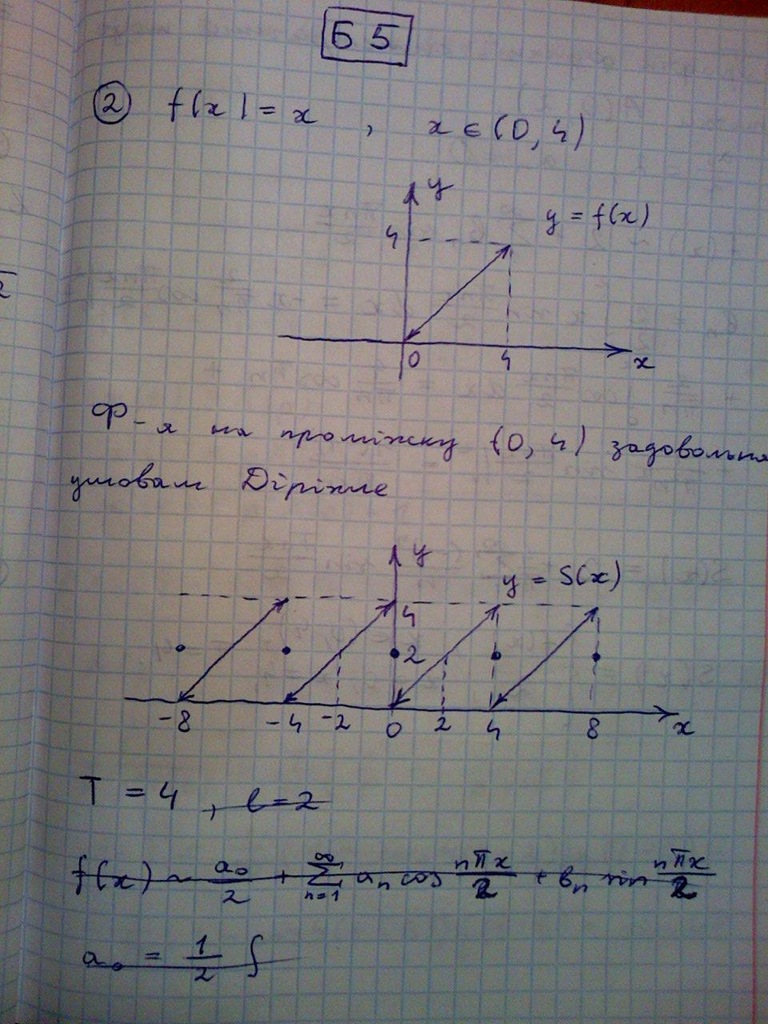 Б 5
② f(x) = x , x ∈ (0, 4)
y
4
y = f(x)
0 4 x
Ф-я на проміжку (0, 4) задовольня
умовам Діріхле
y
y = S(x)
4
2
-8 -4 -2 0 2 4 8 x
T = 4 , l = 2
f(x) ~ a₀/2 + ∑_{n=1}^{∞} aₙ cos nπx/2 + bₙ sin nπx/2
a₀ = 1/2 ∫